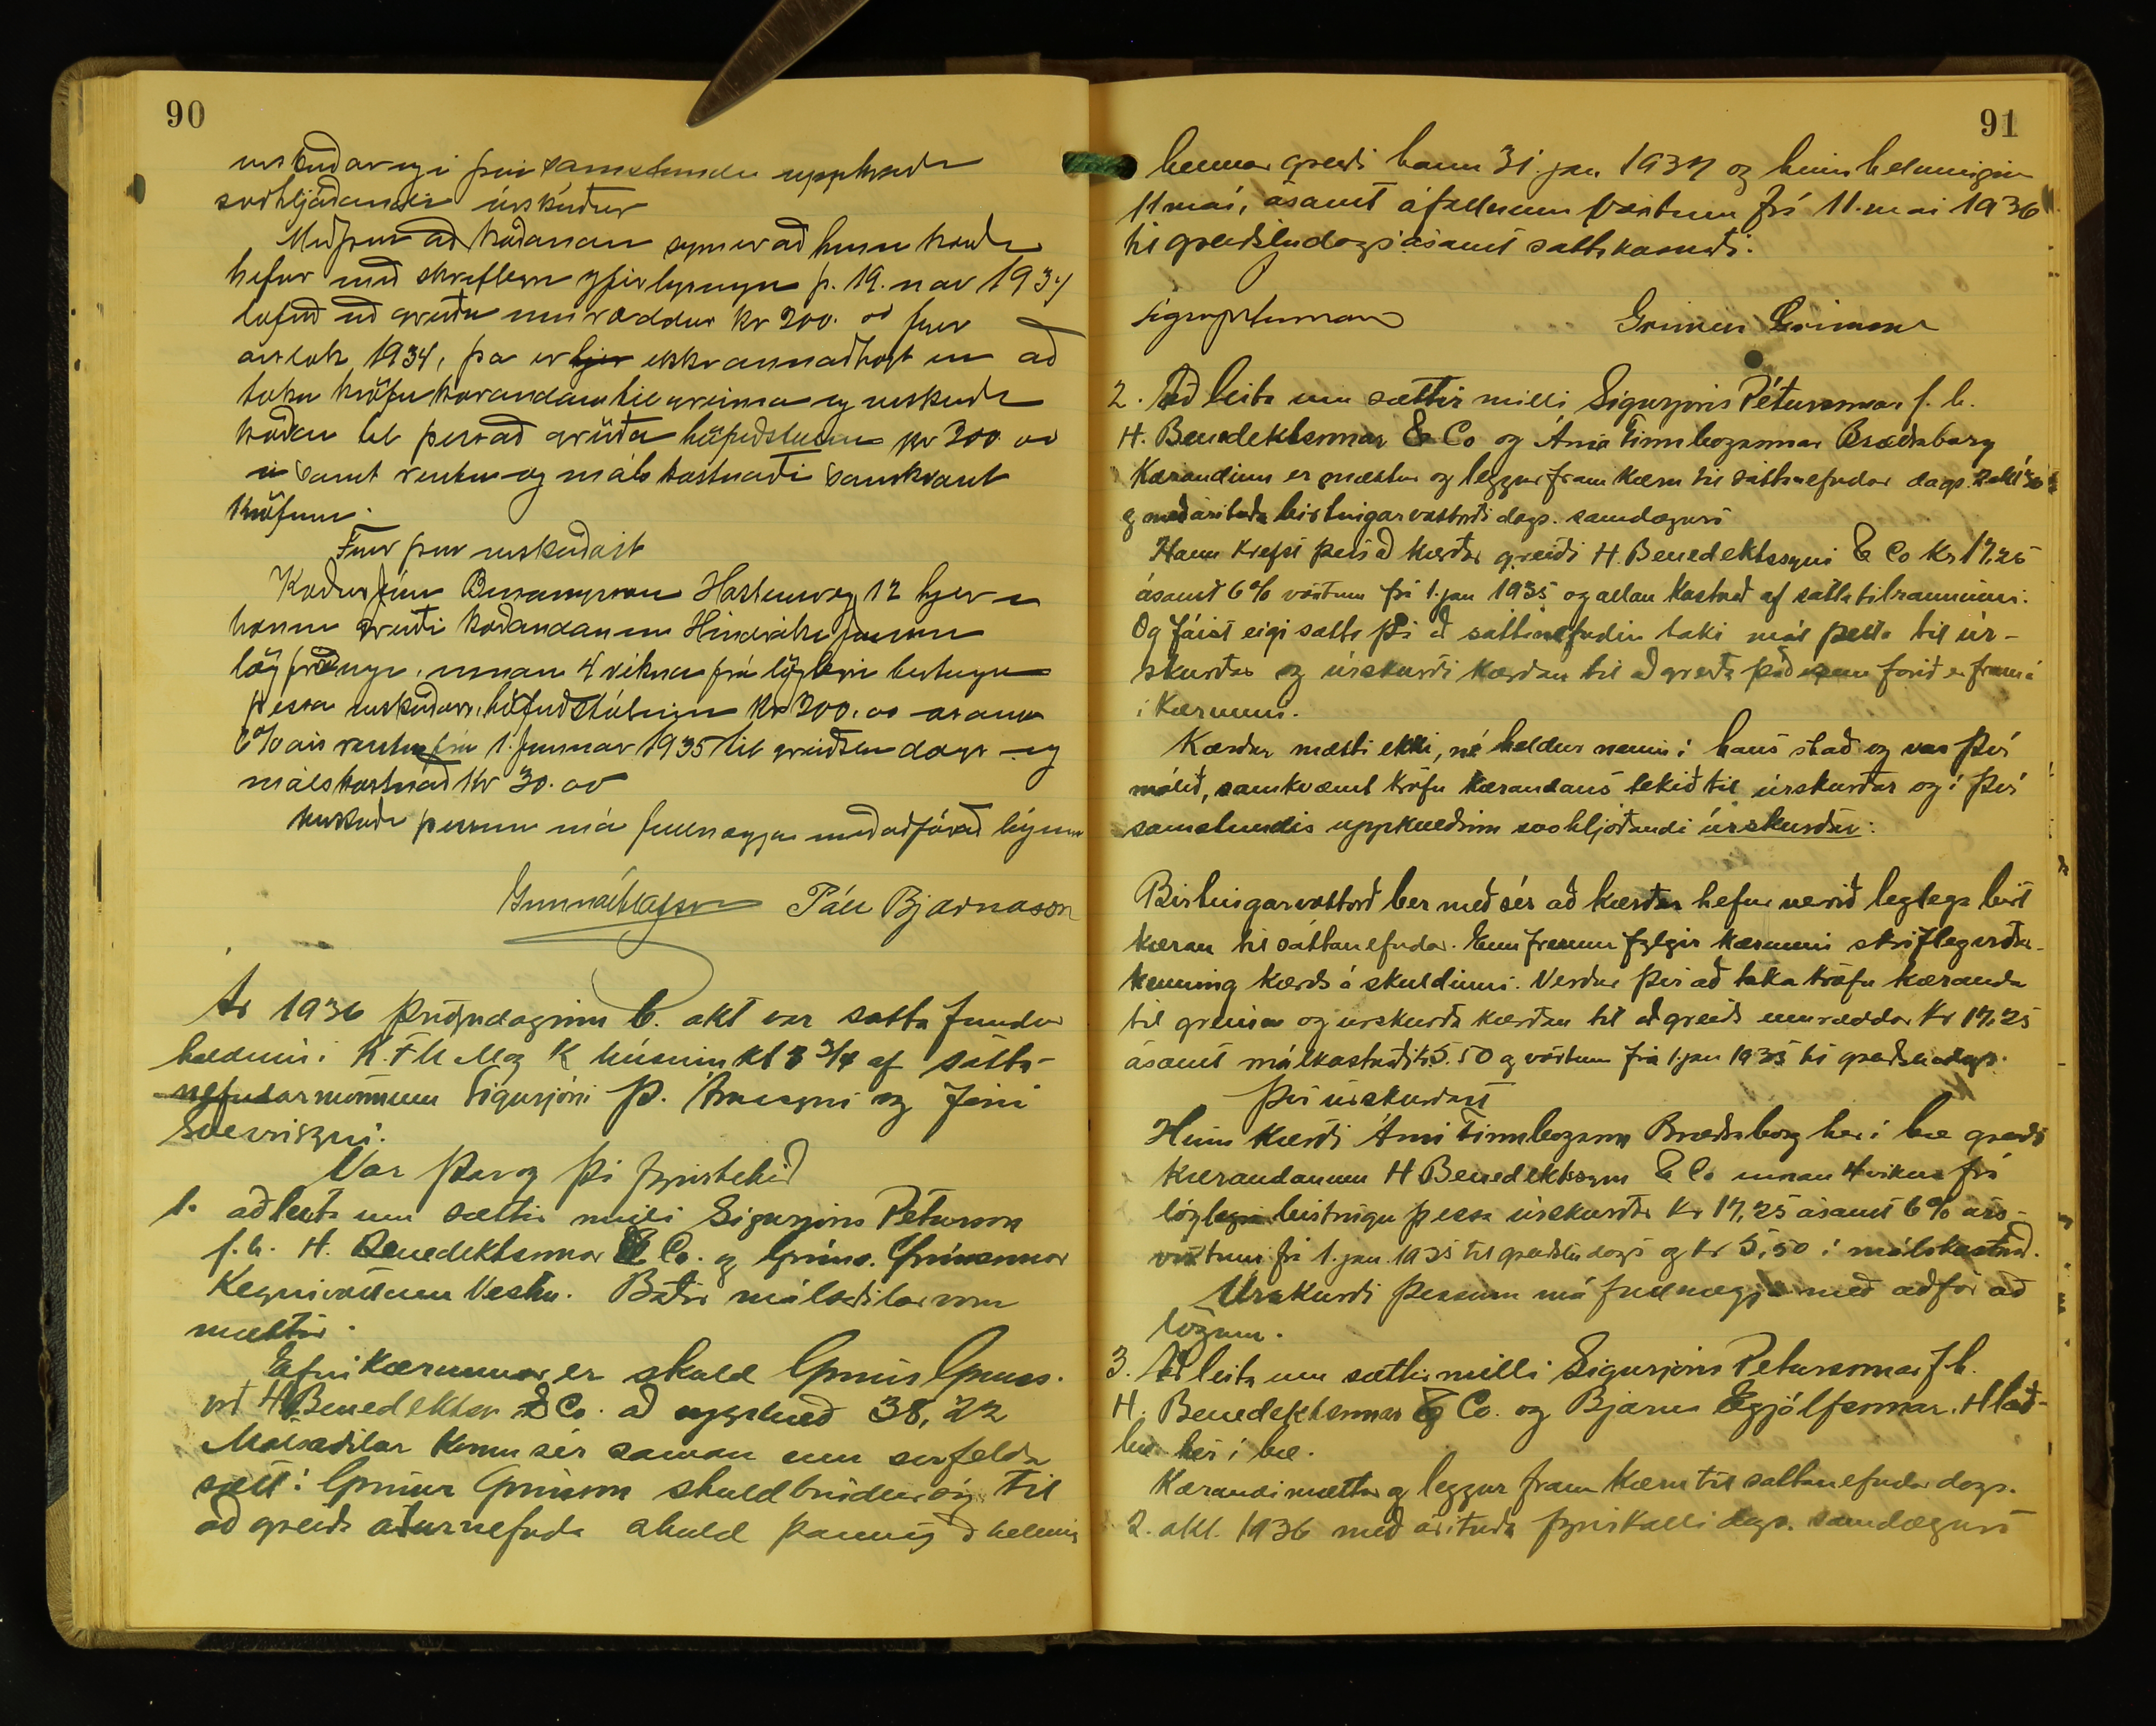 90
urskurðar og í því samstundis uppkveðin
svohljóðandi úrskurður
Með því að kærðanum synir að hinn kærði
hefur með skriflegri yfirlýsingu þ. 19. nov 1934
lofað að greiða umræddar kr 200. 00 fyrir
árslok 1934, þá er ekki annað hægt en að
taka kröfu kærandans til greina og urskurða
kærðan til þess að greiða höfuðstólinn kr 200. 00
á samt rentu og málskostnaði samkvæmt
kröfunni.
Fyrir því urskurðast
Kærður Jón 12 hjer
honum greiði kærandanum Hinrik Jónssyni
lögfræðingi, innan 4 vikna frá löglegri birtingu
þessa urskurðar, höfuðstólinn kr 200. 00 asamt
6% árs rentu frá 1. Januar 1935 til greiðslu dags og
málskostnað kr 30. 00
Urskurði þessum má fullnægja með aðför að lögum
Gunnar Ólafsson Páll Bjarnason
Ár 1936 þriðjudaginn 6. okt var sátta fundur
haldinn í K.F.U.M og K húsinu kl 8 3/4 af sátta-
nefndarmönnum Sigurjóni Þ. Árnasyni og Jóni
Sverrissyni.
Var þar og þá fyrirtekið
1. að leita um sættir milli Sigurjóns Péturssonar
f.h. H. Benediktssonar & Co. og Gríms. Grímssonar
Vestm. Báðir málsaðilar voru
mættir.
Efni kærunnar er skuld Gríms Gríms.
við H. Benediktsson & Co. að upphæð 38,22
Málsaðilar komu sér saman um svofelda
sætt: Grímur Grímsson skuldbindur sig til
að greiða áðurnefnda skuld þannig að helming
91
hennar greiði hann 31. jan 1937 og hinn helminginn
11 maí, ásamt áföllnum vöxtum frá 11. mai 1936
til greiðsludags ásamt sáttakostnaði.
Sigurj Pétursson Grímur Grímsson
2. Að leita um sættir milli Sigurjóns Péturssonar f. h.
H. Benediktssonar & Co og Árna Finnbogasonar Bræðraborg
Kærandinn er mættur og leggur fram kæru til sáttanefndar dags. 2 okt '36
og með áritaða birtingarvottorði dags. samdægurs
Hann krefst þess að kærður greiði H. Benediktssyni & Co kr 17,25
ásamt 6% vöxtum frá 1. jan 1935 og allan kostnað af sáttatilrauninni.
Og fáist eigi sátt þá að sáttanefndin taki mál þetta til úr-
skurðar og úrskurði kærðan til að greiða það sem farið er fram á
í kærunni.
Kærður mætti ekki, né heldur neinn í hans stað og var því
málið, samkvæmt kröfu kærandans tekið til úrskurðar og í því
samstundis uppkveðinn svohljóðandi úrskurður:
Birtingarvottorð ber með sér að kærðum hefur verið löglega birt
kæran til sáttanefndar. Ennfremur fylgir kærunni skrifleg viður-
kenning kærðs á skuldinni. Verður því að taka kröfu kæranda
til greina og úrskurða kærðan til að greiða umræddar kr 17,25
ásamt málskostnaði kr 5.50 og vöxtum frá 1. jan 1935 til greiðsludags.
Því úrskurðast
Hinn kærði Árni Finnbogason Bræðraborg hér í bæ greiði
kærandanum H Benediktssyni & Co innan 4 vikna frá
löglegri birtingu þessa úrskurðar kr 17,25 ásamt 6% árs-
vöxtum frá 1. jan. 1935 til greiðsludags og kr 5,50 í málskostnað.
Úrskurði þessum má fullnægja með aðför að
lögum.
3. Að leita um sættir milli Sigurjóns Péturssonar f h.
H. Benediktssonar & Co. og Bjarna Eyjólfssonar. Hlað-
bæ hér í bæ.
Kærandi mættur og leggur fram kæru til sáttanefndar dags.
2. okt. 1936 með áritaða fyrirkalli dags. samdægurs